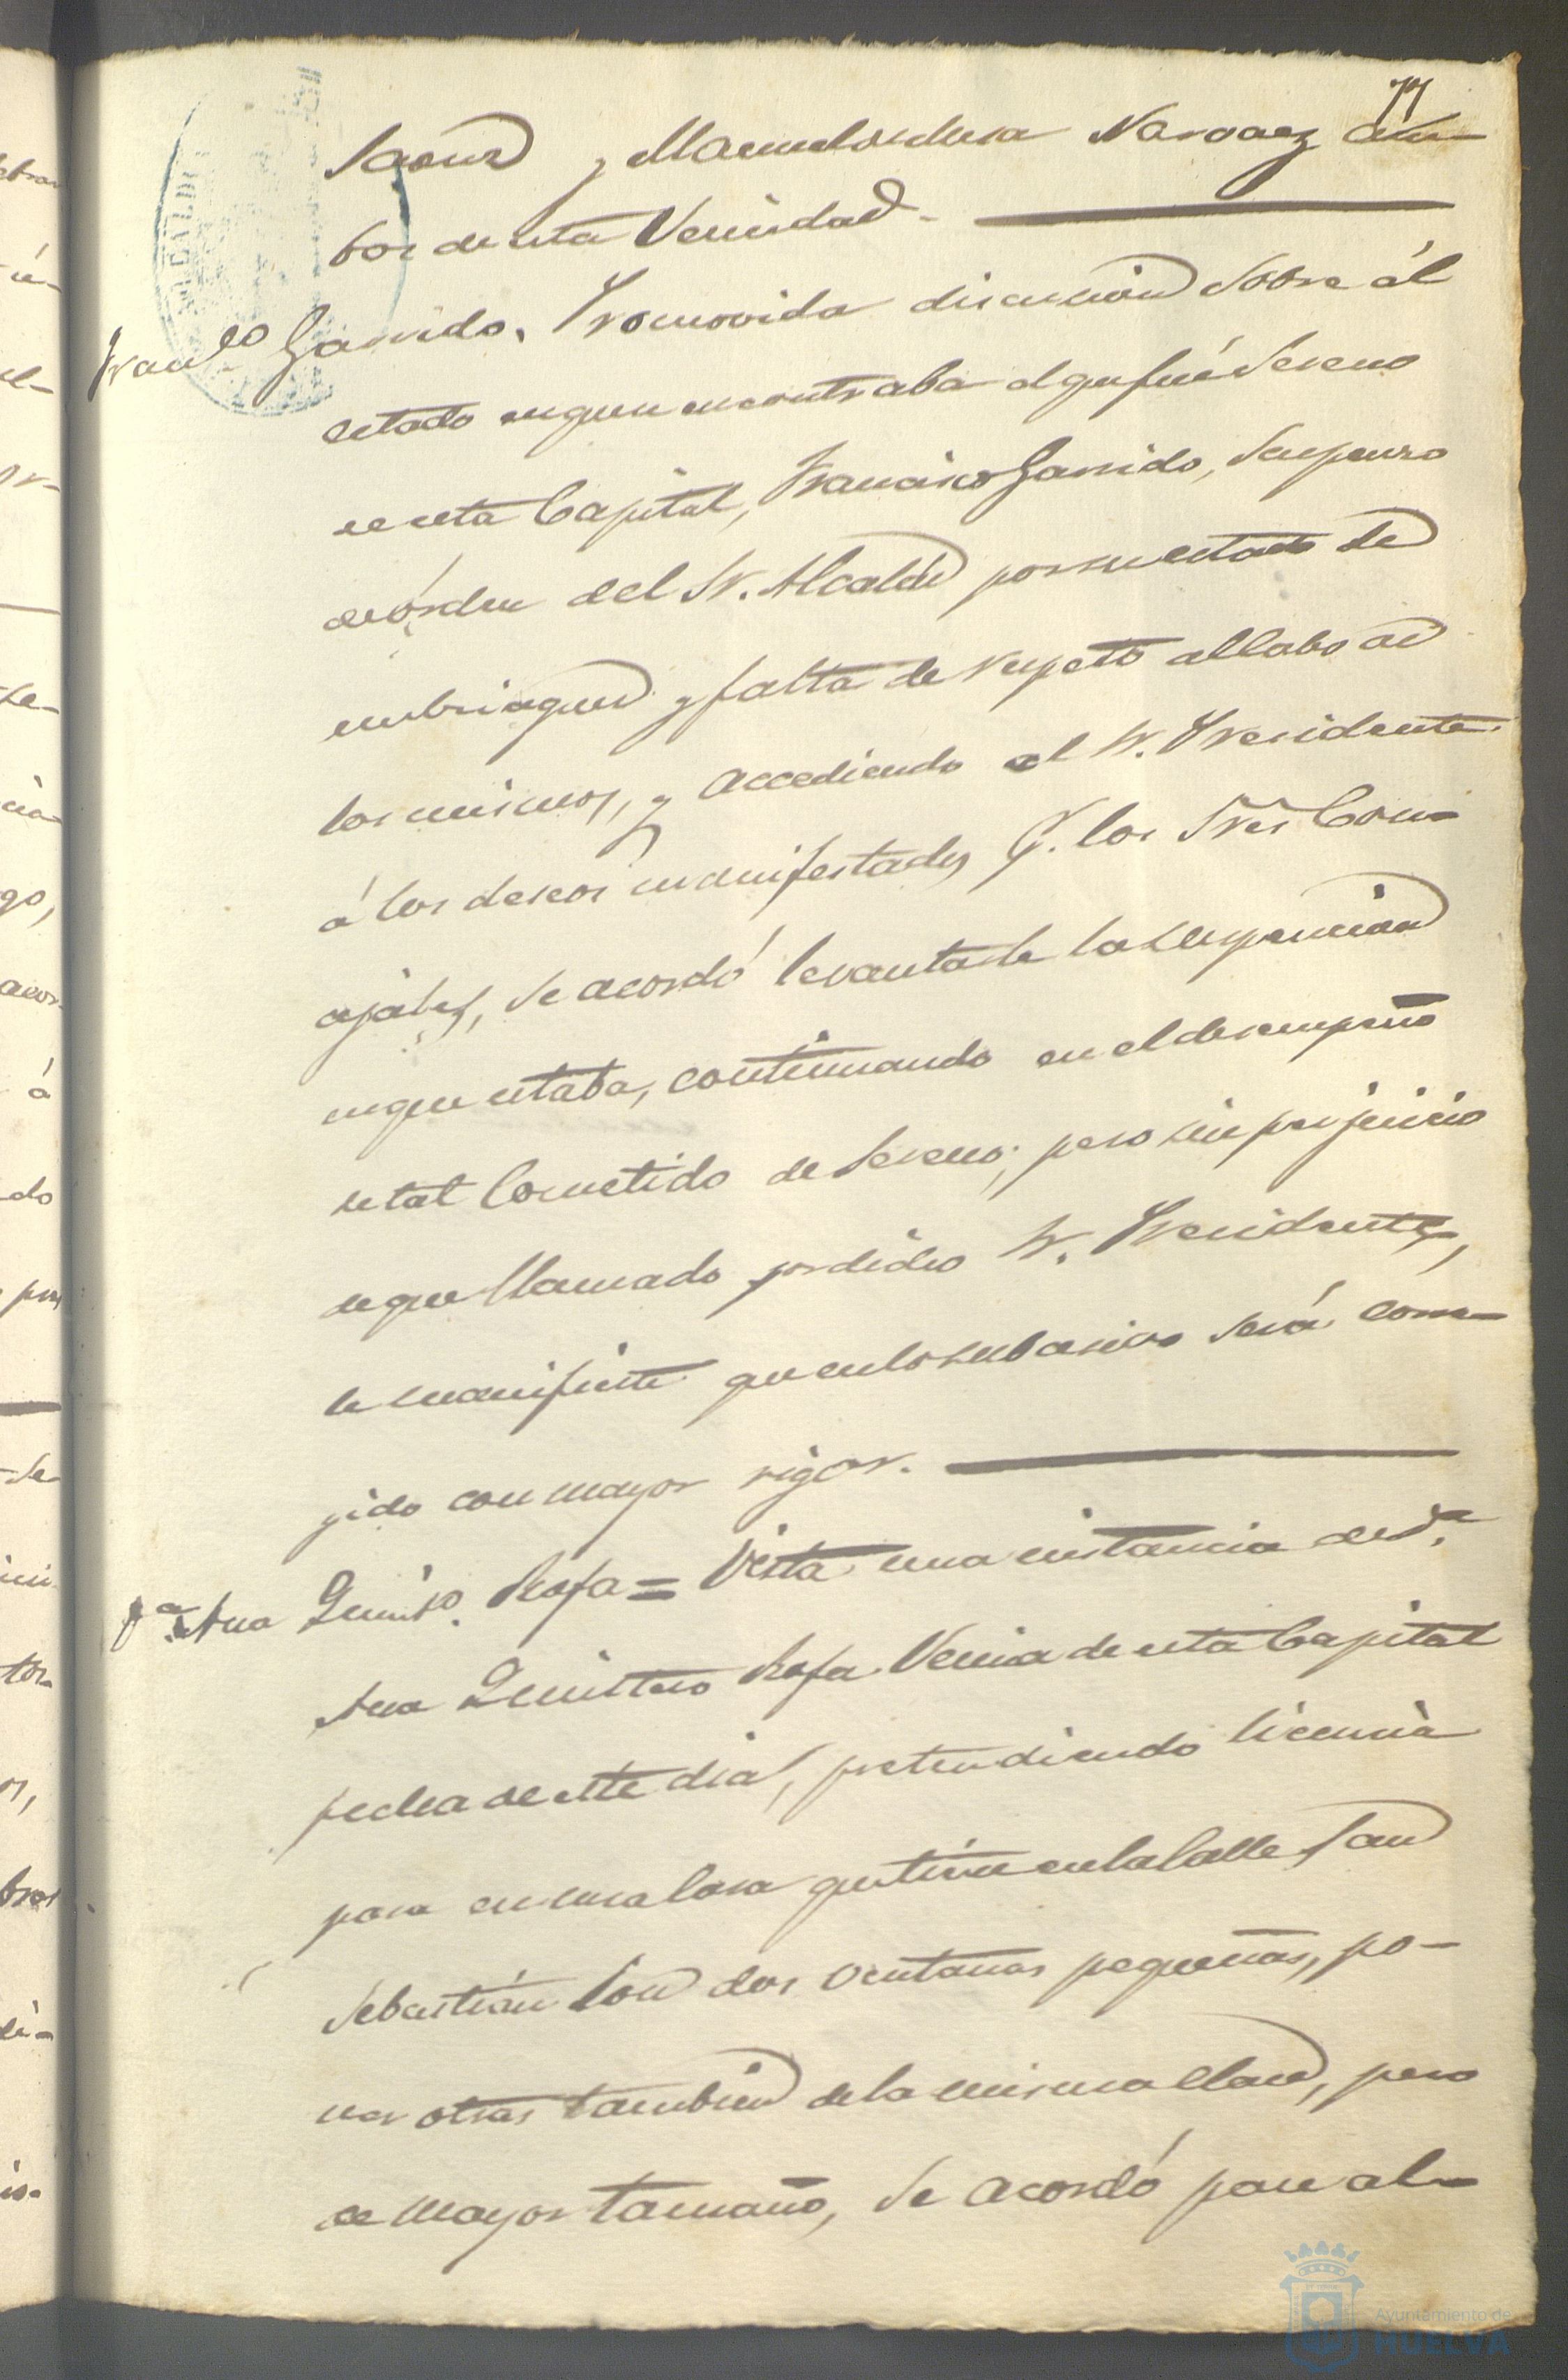 77
y Manuel Narvaez am-
bos de esta Vecindad.
Franco Garrido. Promovida discusión sobre él
estado en que se encontraba el que fué Sereno
de esta Capital, Francisco Garrido, suspenso
de órden del Sr. Alcalde por su estado de
embriaguez y falta de respeto al Cabo de
los mismos, y accediendo el Sr. Presidente
á los deseos manifestados p. los Sres Con-
cejales, se acordó levantarle la suspensión
en que estaba, continuando en el desempeño
de tal Cometido de Sereno; pero sin perjuicio
de que llamado por dicho Sr. Presidente,
le manifieste que en lo subcesivo será corre-
gido con mayor rigor.
Da. Ana Quinto. Rofa = Vista una instancia de Da.
Ana Quintero Rofa Vecina de esta Capital
fecha de este dia, pretendiendo licencia
para en una Casa que tiene en la Calle San
Sebastián con dos ventanas pequeñas, po-
ner otras tambien de la misma clase, pero
de mayor tamaño, se acordó pase al
Ayuntamiento de
HUELVA